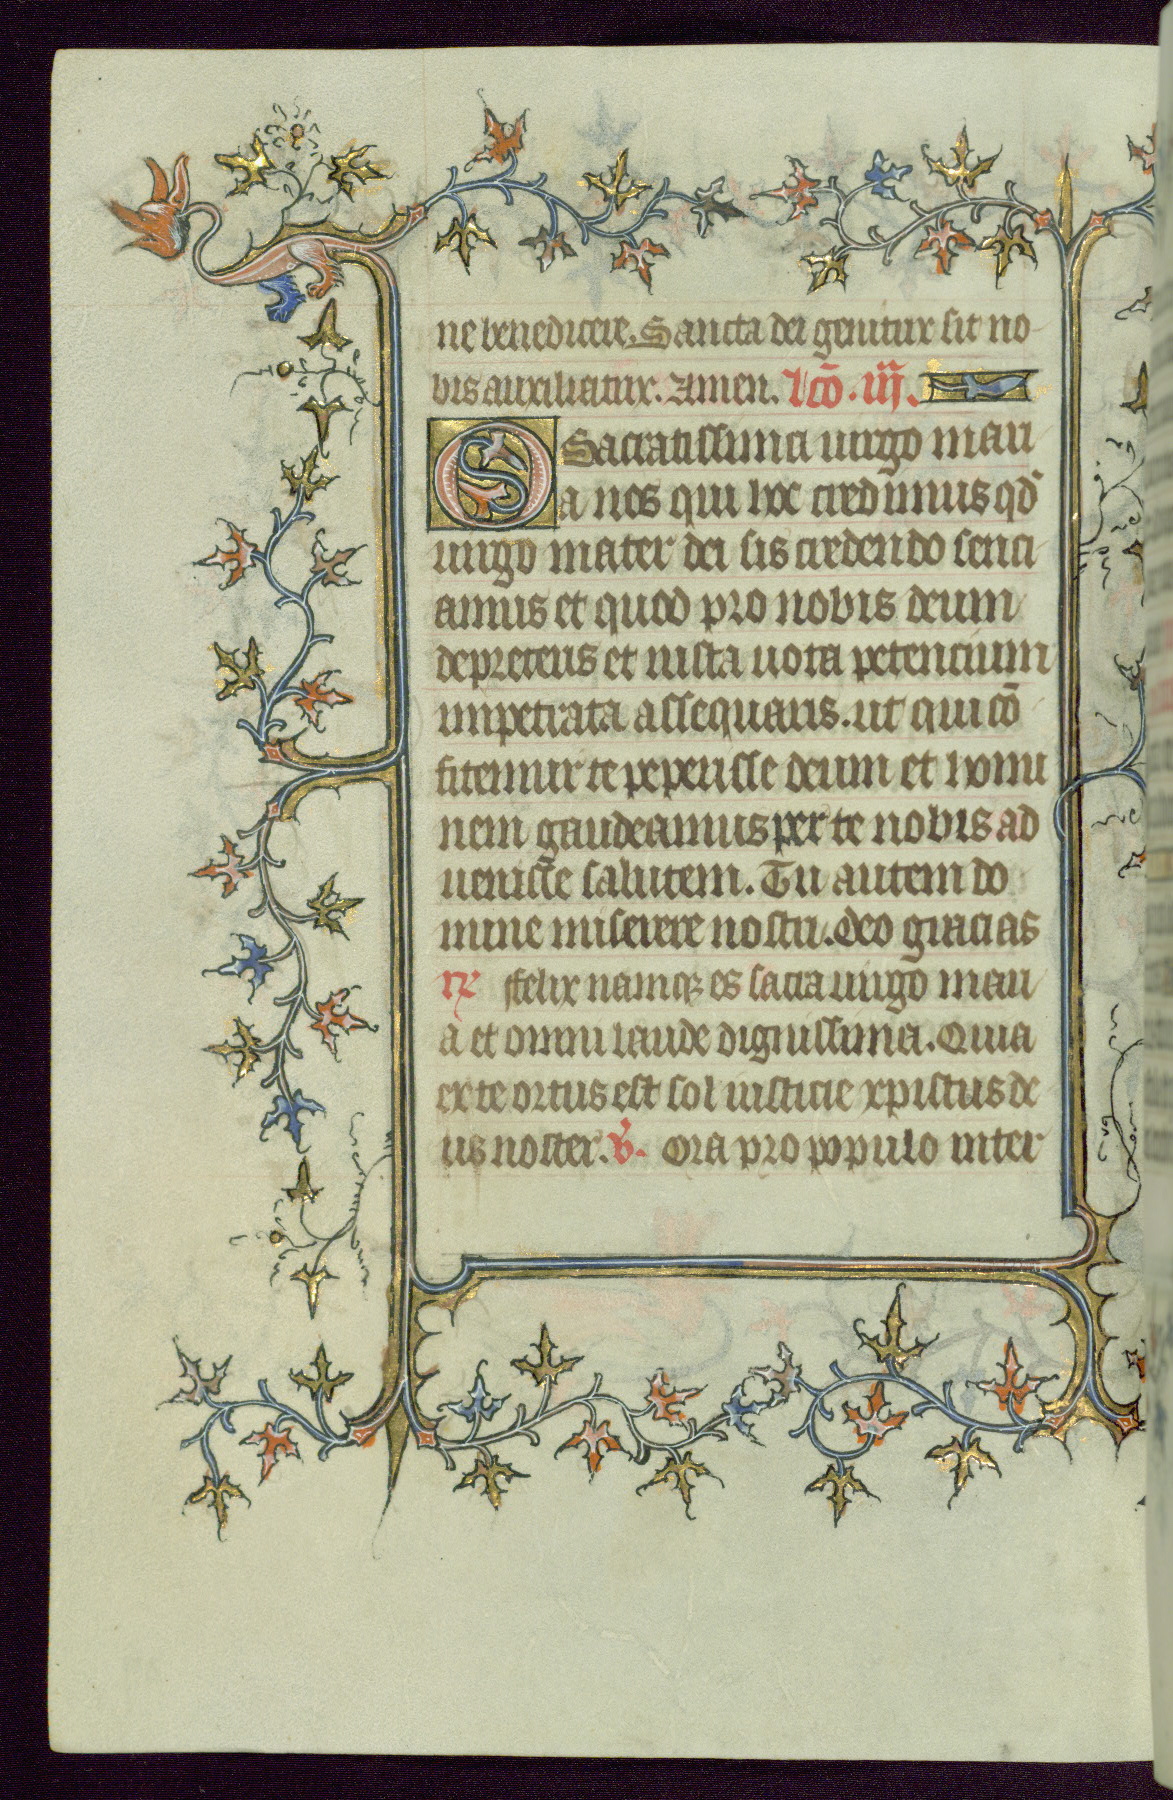 ne benedicere. Sancta dei genitrix sit no
bis auxiliatrix. Amen. lcō. iij.
O Sacratissima uirgo mari
a nos qui hoc credimus qd̄
uirgo mater dei sis credendo senci
amus et quod pro nobis deum
depreceris et iusta uota petencium
impetrata assequaris. ut qui cō
fitemur te peperisse deum et homi
nem gaudeamus per te nobis ad
uenisse salutem. Tu autem do
mine miserere nostri. Deo gracias
℟ Felix namq; es sacra uirgo mari
a et omni laude dignissima. Quia
ex te ortus est sol iusticie xpistus de
us noster. ℣. Ora pro populo inter